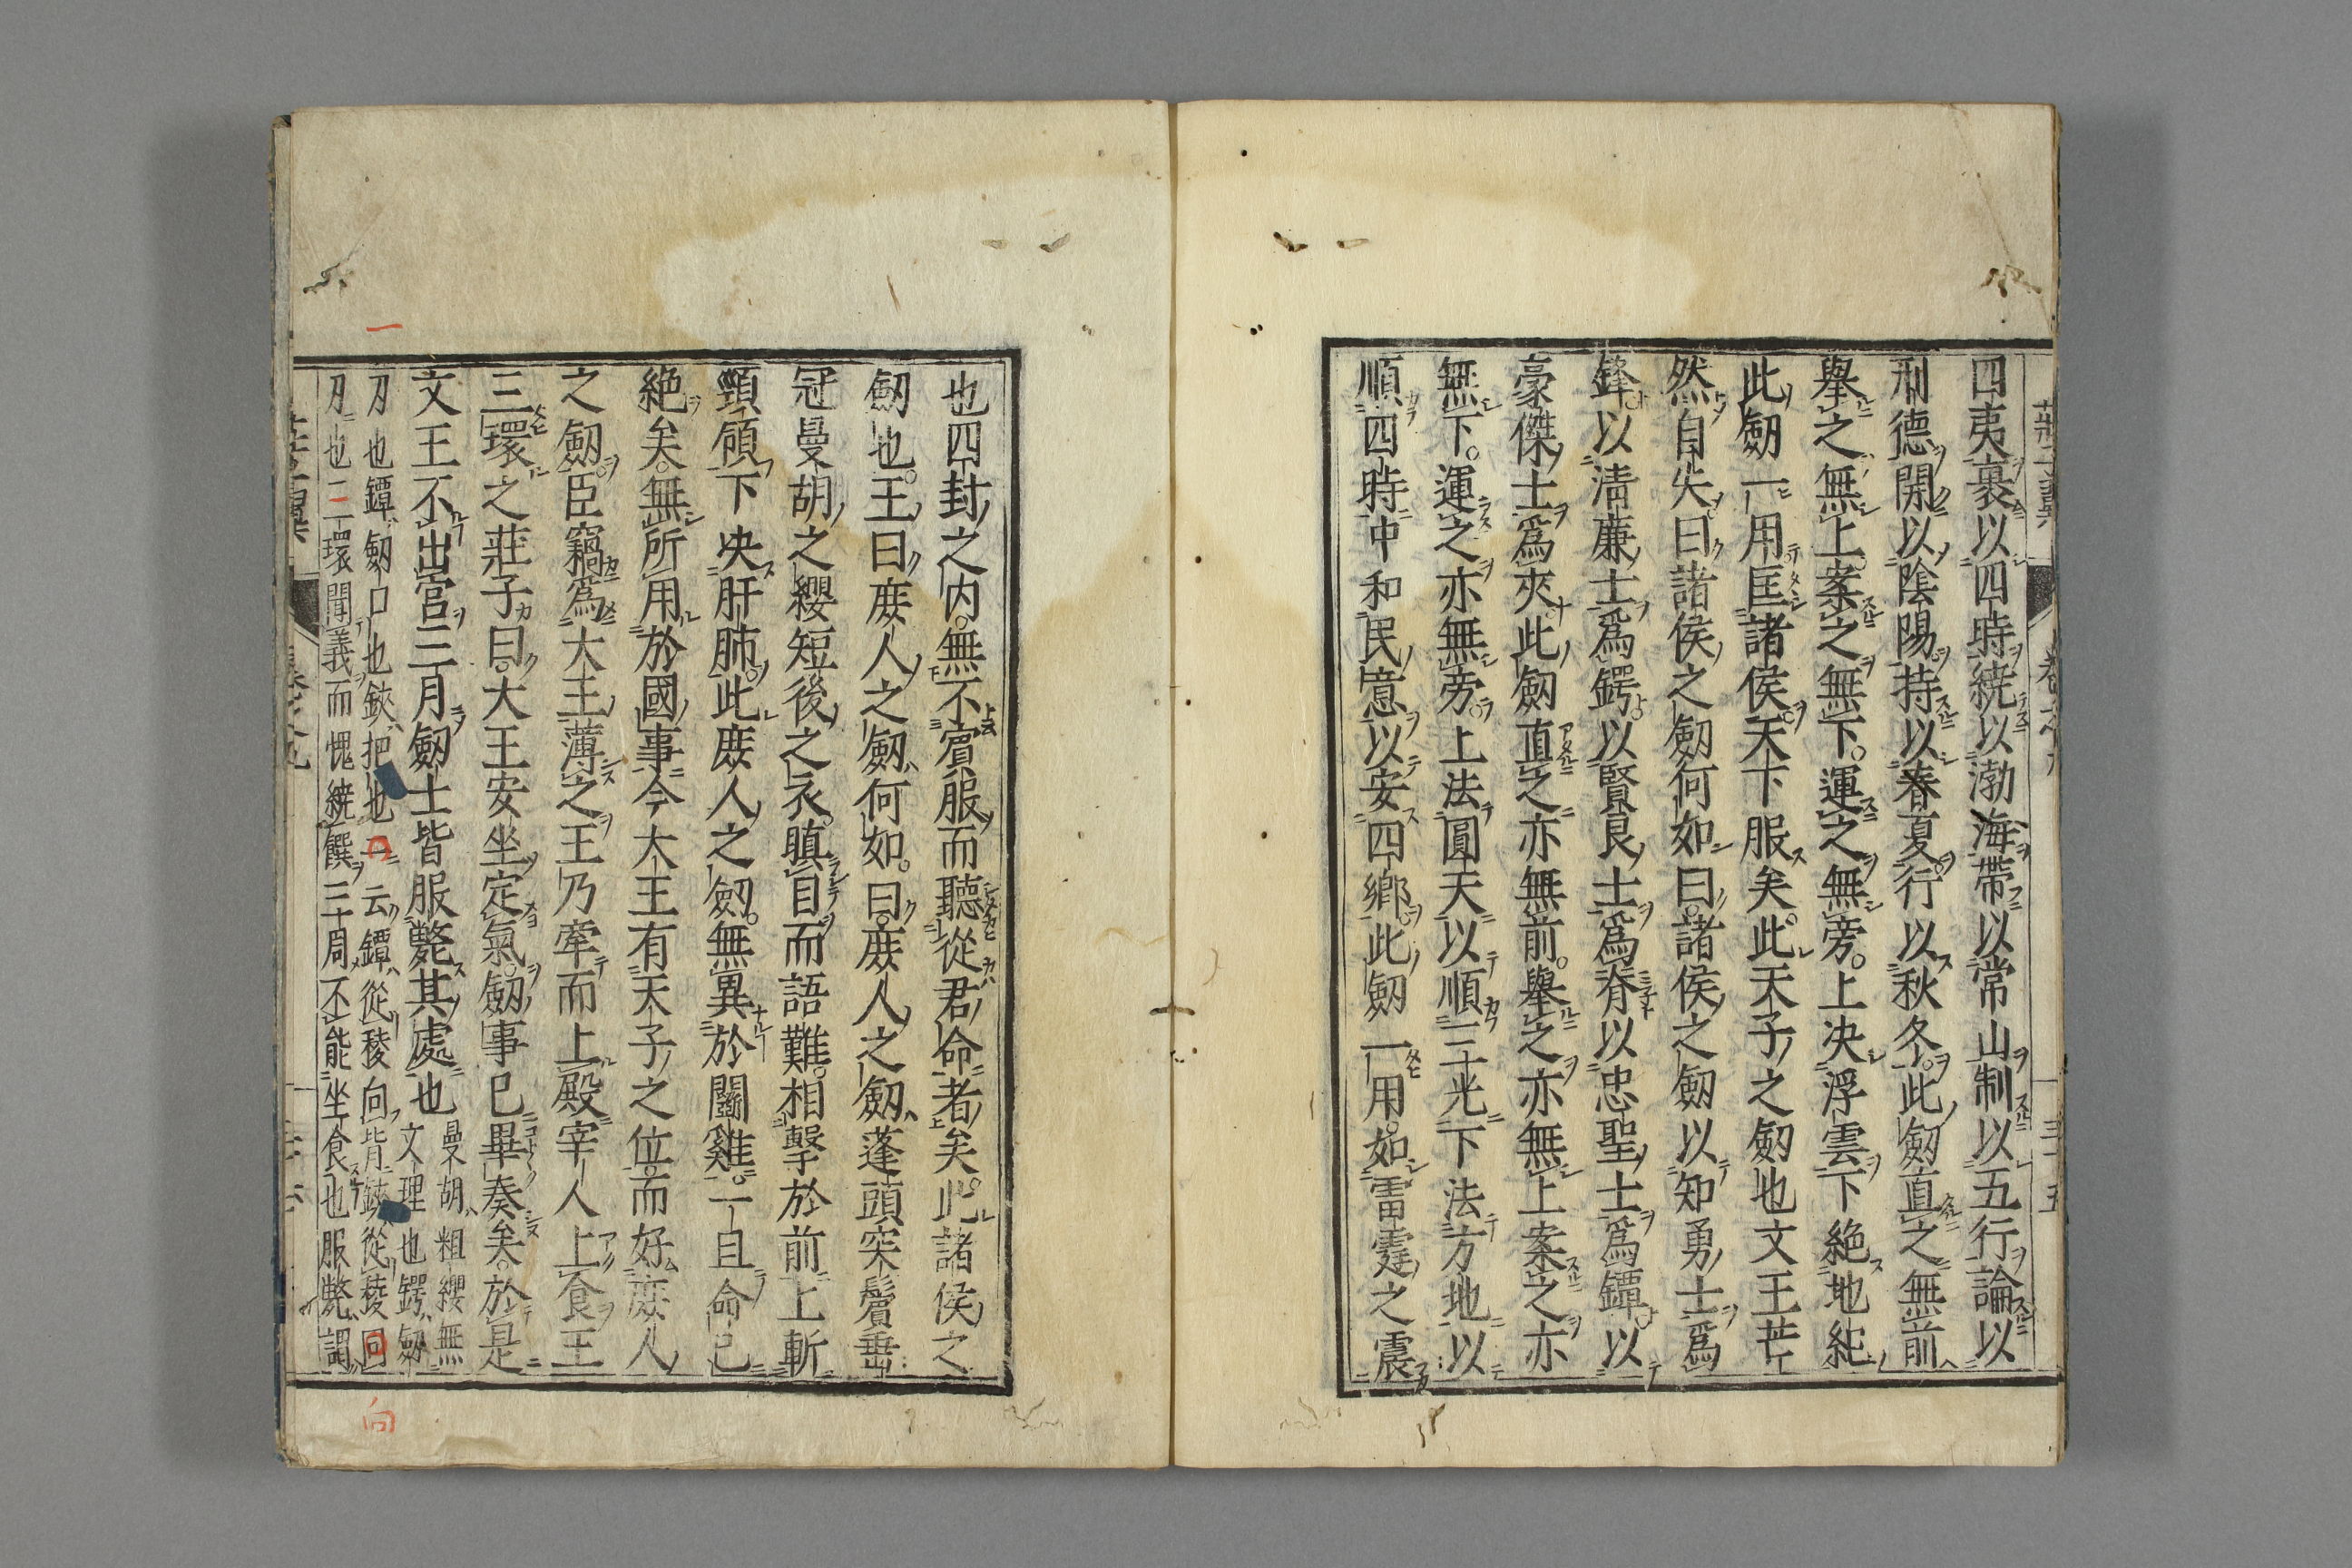 四夷裹以四時繞以渤海帶以常山制以五行論以
刑德開以陰陽持以春夏行以秋冬此劒直之無前
舉之無上案之無下運之無旁上决浮雲下絶地紀
此劒一用匡諸侯天下服矣此天子之劒也文王芒
然自失曰諸侯之劒何如曰諸侯之劒以知勇士爲
鋒以淸廉士爲鍔以賢良士爲脊以忠聖士爲鐔以
豪傑士爲夾此劒直之亦無前舉之亦無上案之亦
無下運之亦無旁上法圓天以順三光下法方地以
順四時中和民意以安四鄉此劒一用如雷霆之震
也四封之内無不賓服而聽從君命者矣此諸侯之
劒也王曰庻人之劒何如曰庻人之劒蓬頭突鬢垂
冠曼胡之纓短後之衣瞋目而語難相擊於前上斬
頸領下决肝肺此庻人之劒無異於鬬雞一旦命已
絶矣無所用於國事今大王有天子之位而好庻人
之劒臣竊爲大王薄之王乃牽而上殿宰人上食王
三環之莊子曰大王安坐定氣劒事已畢奏矣於是
文王不出宮三月劒士皆服斃其處也
曼胡粗纓無
文理也鍔劒
刀也鐔劒口也鋏把也一云鐔從稜向背鋏從稜向
刀也三環聞義而愧繞饌三周不能坐食也服斃謂